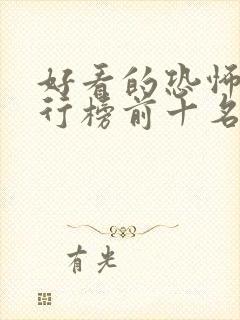 好看的恐怖
行榜前十名
有光